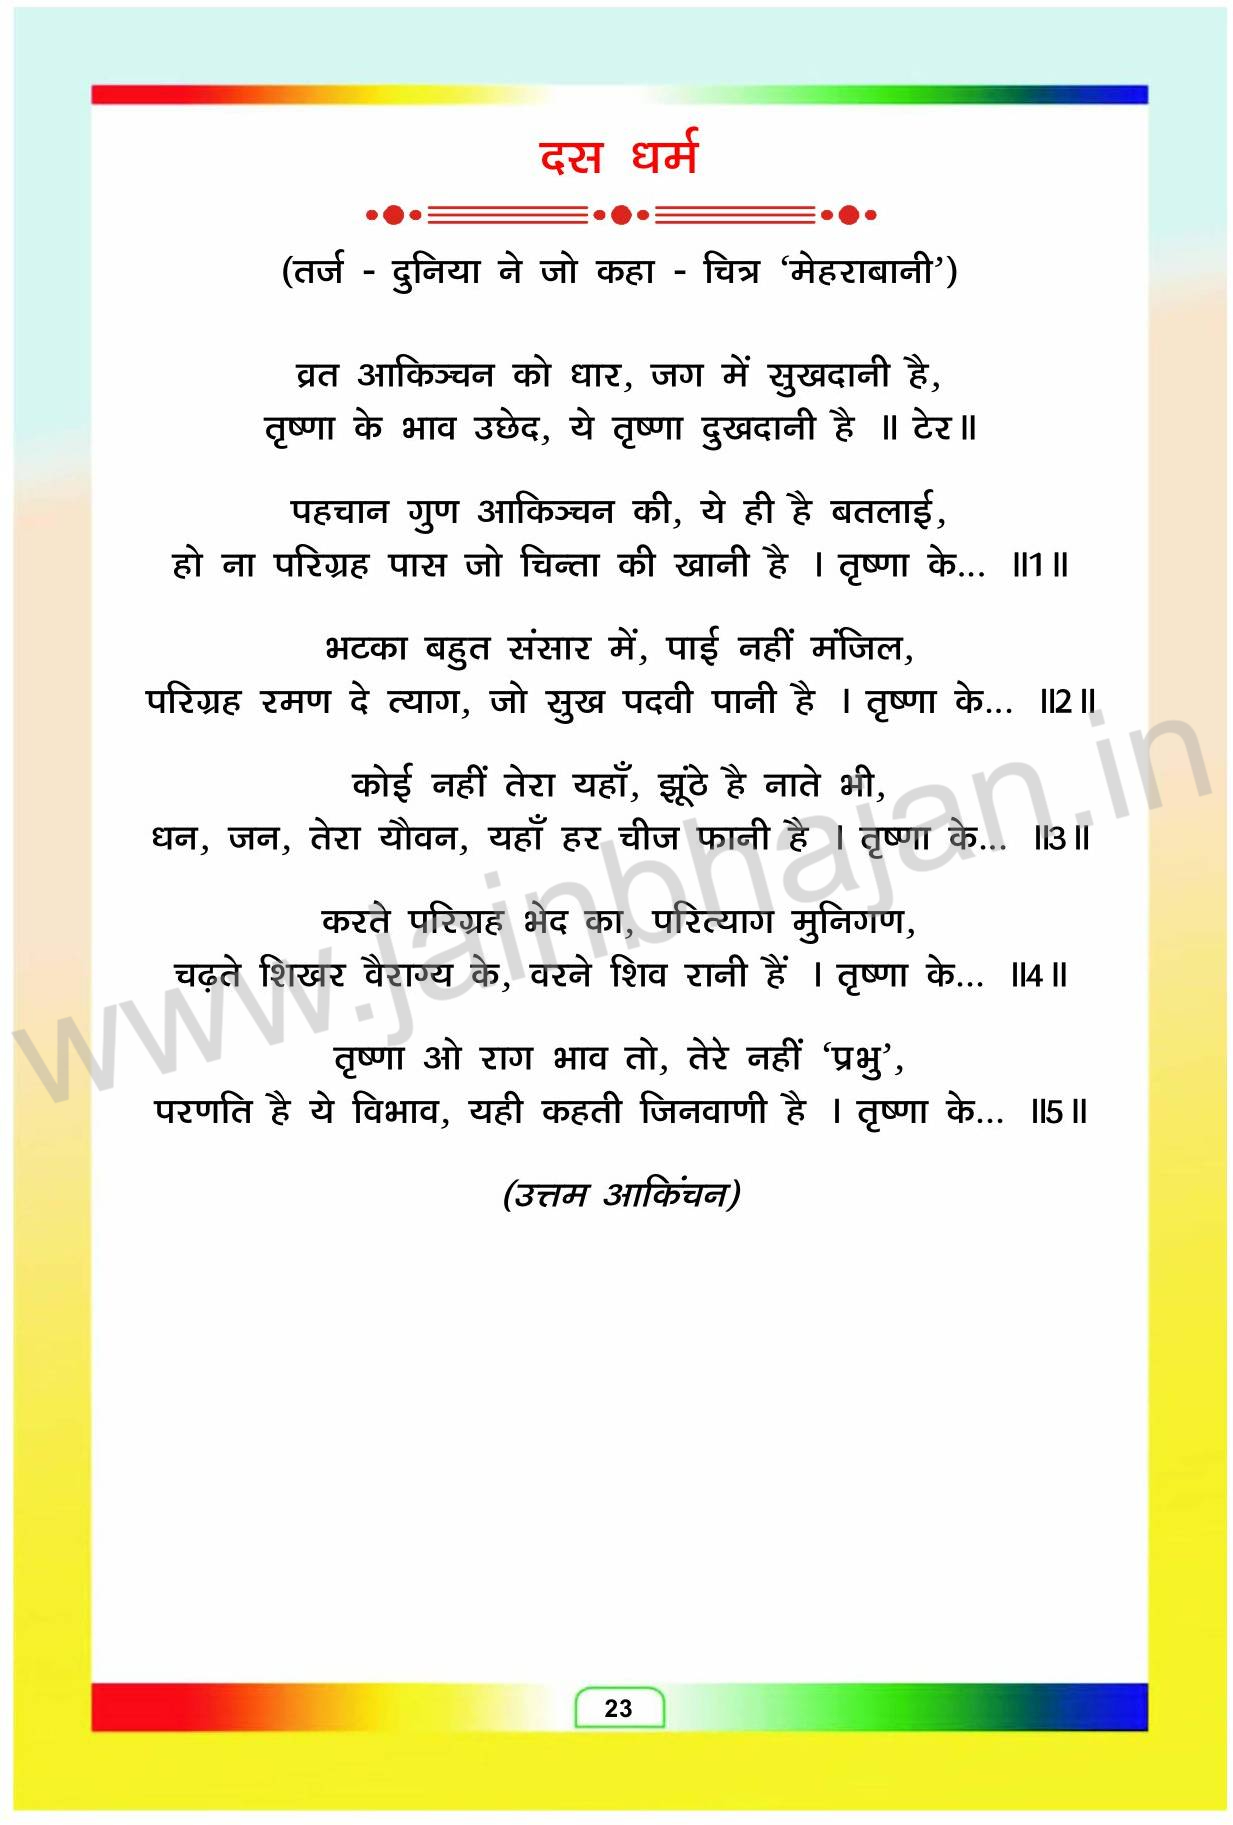 दस धर्म
(तर्ज - दुनिया ने जो कहा - चित्र ‘मेहराबानी’)
व्रत आकिञ्चन को धार, जग में सुखदानी है,
तृष्णा के भाव उछेद, ये तृष्णा दुखदानी है ॥ टेर॥
पहचान गुण आकिञ्चन की, ये ही है बतलाई,
हो ना परिग्रह पास जो चिन्ता की खानी है । तृष्णा के... ॥1॥
भटका बहुत संसार में, पाई नहीं मंजिल,
परिग्रह रमण दे त्याग, जो सुख पदवी पानी है । तृष्णा के... ॥2॥
कोई नहीं तेरा यहाँ, झूंठे है नाते भी,
धन, जन, तेरा यौवन, यहाँ हर चीज फानी है । तृष्णा के... ॥3॥
करते परिग्रह भेद का, परित्याग मुनिगण,
चढ़ते शिखर वैराग्य के, वरने शिव रानी हैं । तृष्णा के... ॥4॥
तृष्णा ओ राग भाव तो, तेरे नहीं ‘प्रभु’,
परणति है ये विभाव, यही कहती जिनवाणी है । तृष्णा के... ॥5॥
(उत्तम आकिंचन)
www.jainbhajan.in
23